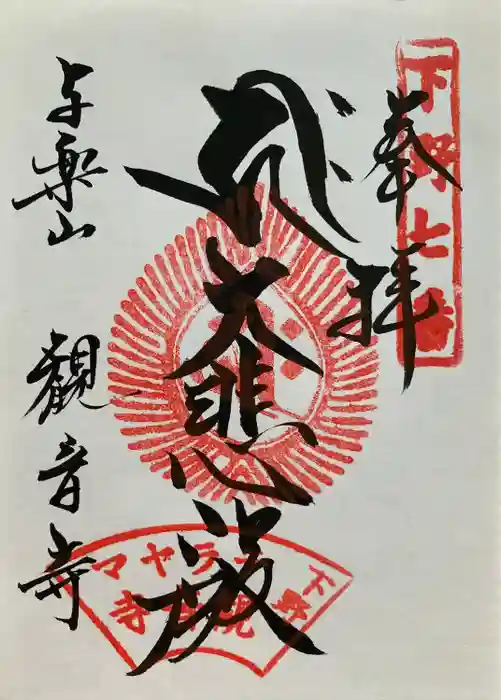 奉拝
下野七番
大悲殿
与楽山
観音寺
下野
観音寺